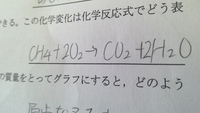 できる。この化学変化は化学反応式でどう表
CH4+2O2→CO2+2H2O
の質量をとってグラフにすると、どのよう